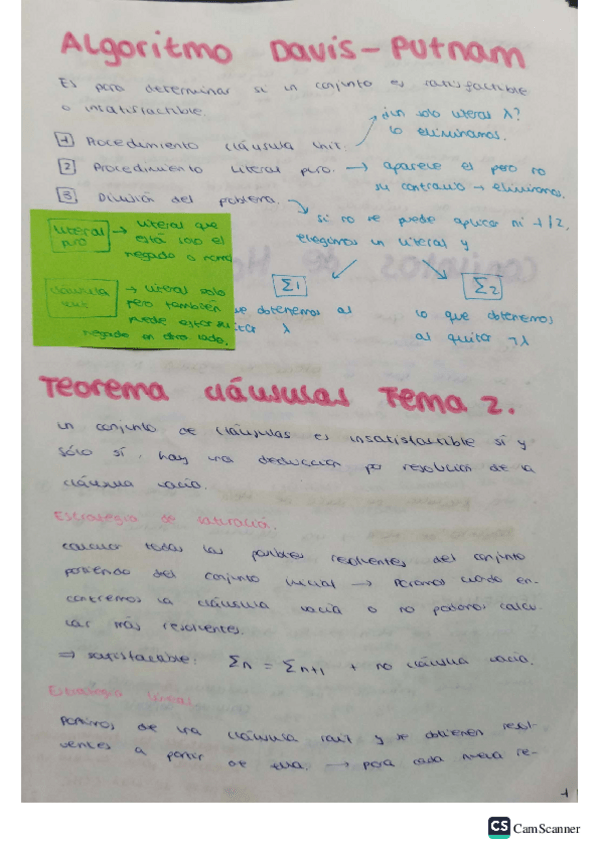 Algoritmo Davis-Putnam
Es para determinar si un conjunto es satisfactible
o insatisfactible.
¿un solo literal λ?
lo eliminamos.
1 Procedimiento cláusula unit.
2 Procedimiento literal puro. → aparece el pero no
su contrario → eliminamos.
3 División del problema.
si no se puede aplicar ni 1/2,
elegimos un literal y
literal → literal que
puro está solo el
negado o normal
cláusula → literal solo
unit pero también
puede estar su
negado en otro lado.
Σ1
Σ2
obtenemos al
quitar λ
lo que obtenemos
al quitar ¬λ
Teorema cláusulas Tema 2.
un conjunto de cláusulas es insatisfactible sí y
sólo sí, hay una deducción por resolución de la
cláusula vacía.
Estrategia de saturación.
calcular todas las posibles resolventes del conjunto
partiendo del conjunto inicial → Paramos cuando en-
contremos la cláusula vacía o no podamos calcu
lar más resolventes.
⇒ satisfacible: Σn = Σn+1 + no cláusula vacía.
Estrategia lineal
Partimos de una cláusula raíz y se obtienen resol-
ventes a partir de ella. → para cada nueva re-
1
CS CamScanner